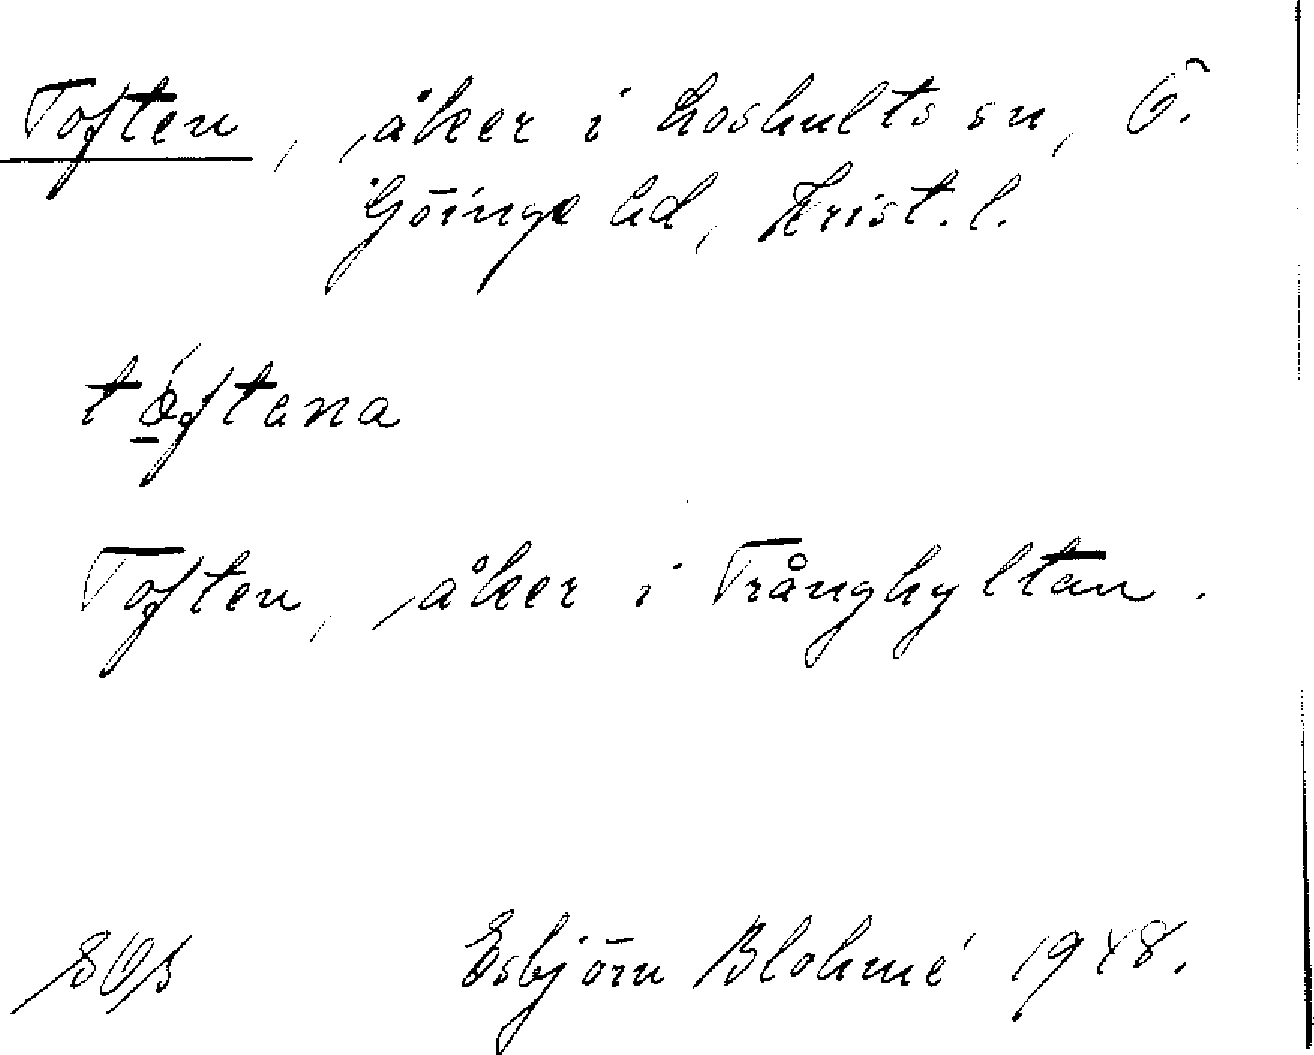 Toften, åker i Loshults sn, Ö.
Göinge hd, Krist. l.
tóftana
Toften, åker i Trånghyltan.
Esbjörn Blohmé 1948.